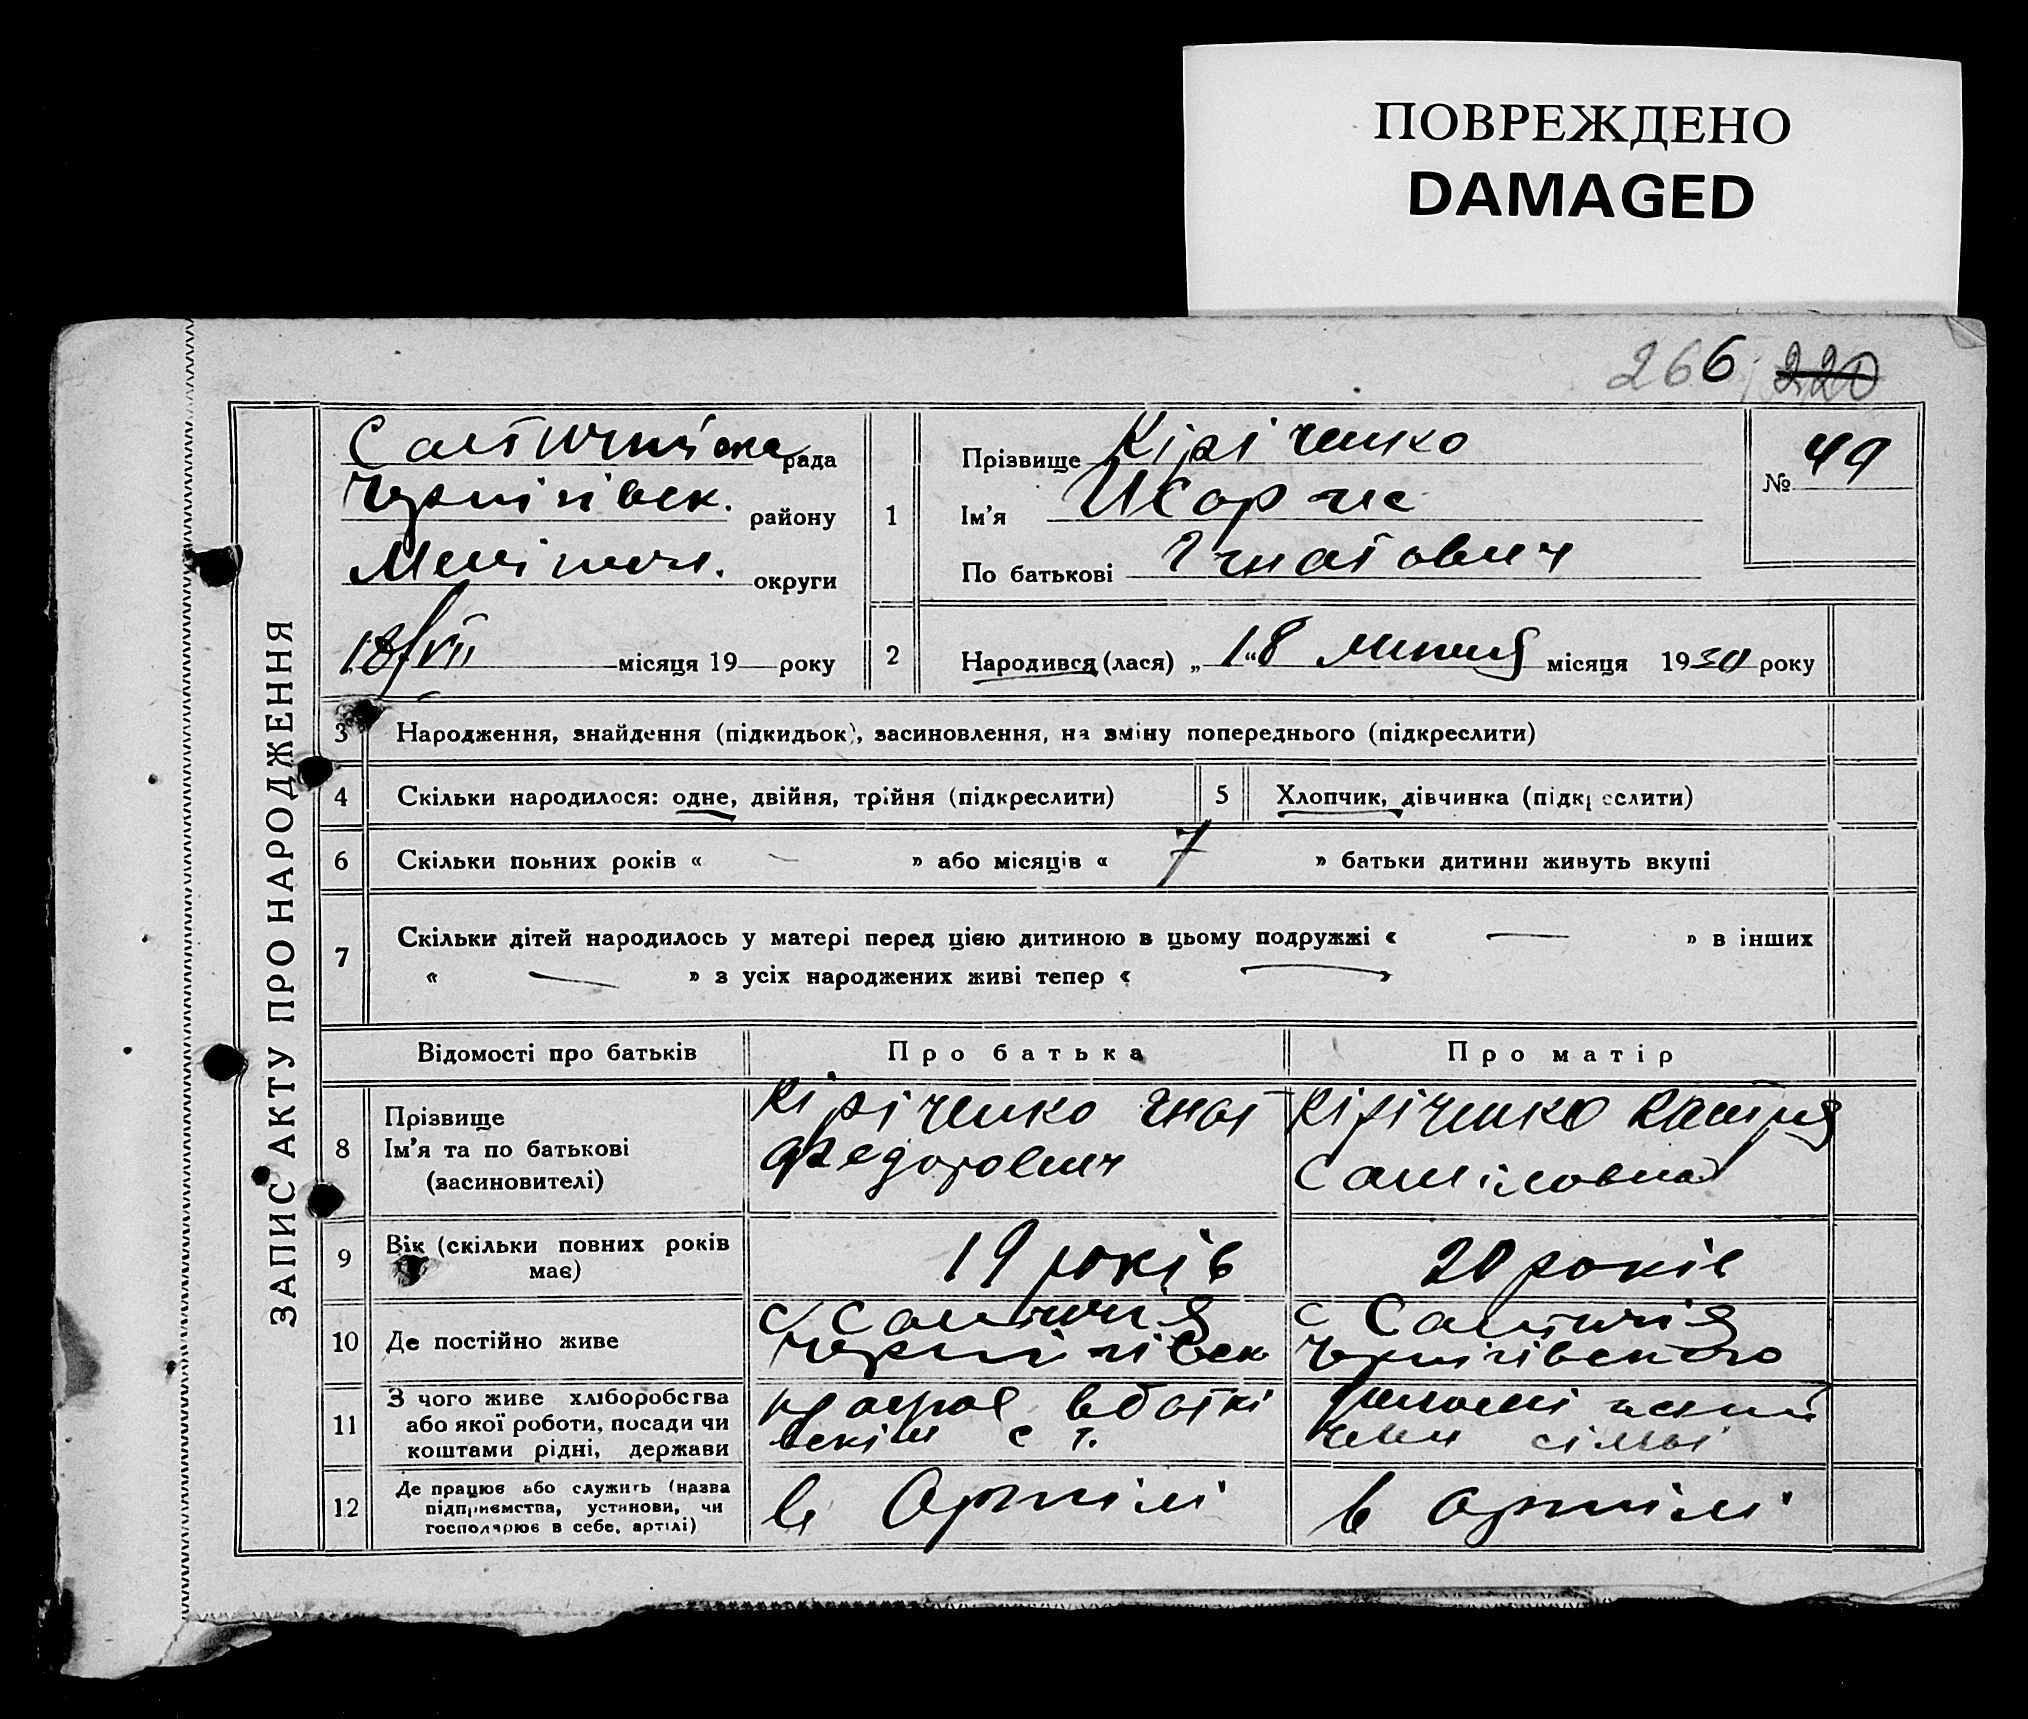 ПОВРЕЖДЕНО
DAMAGED
266 220
ЗАПИС АКТУ ПРО НАРОДЖЕННЯ
Салтичійська рада
Чернігівськ. району
Мелітоп. округи
18/VII місяця 19 року
1
Прізвище Кірі ченко
Ім'я
По батькові Гнатович
№ 49
2
Народився (лася) „ 18 “ липня місяця 1930 року
3 Народження, знайдення (підкидьок), засиновлення, на зміну попереднього (підкреслити)
4 Скільки народилося: одне, двійня, трійня (підкреслити)
5 Хлопчик, дівчинка (підкреслити)
6 Скільки повних років « — » або місяців « 7 » батьки дитини живуть вкупі
7 Скільки дітей народилось у матері перед цією дитиною в цьому подружжі « — » в інших
« — » з усіх народжених живі тепер « — »
Відомості про батьків Про батька Про матір
8 Прізвище
Ім'я та по батькові
(засиновителі)
Кіріченко Гнат
Федорович
Кіріченко Катря
Самійловна
9 Вік (скільки повних років
має)
19 років
20 років
10 Де постійно живе
с. Салтичія
Чернігівськ
с Салтичія
Чернігівського
11 З чого живе хліборобства
або якої роботи, посади чи
коштами рідні, держави
с т.
сімьі
12 Де працює або служить (назва
підприємства, установи, чи
господарює в себе, артілі)
в Артілі
в артілі